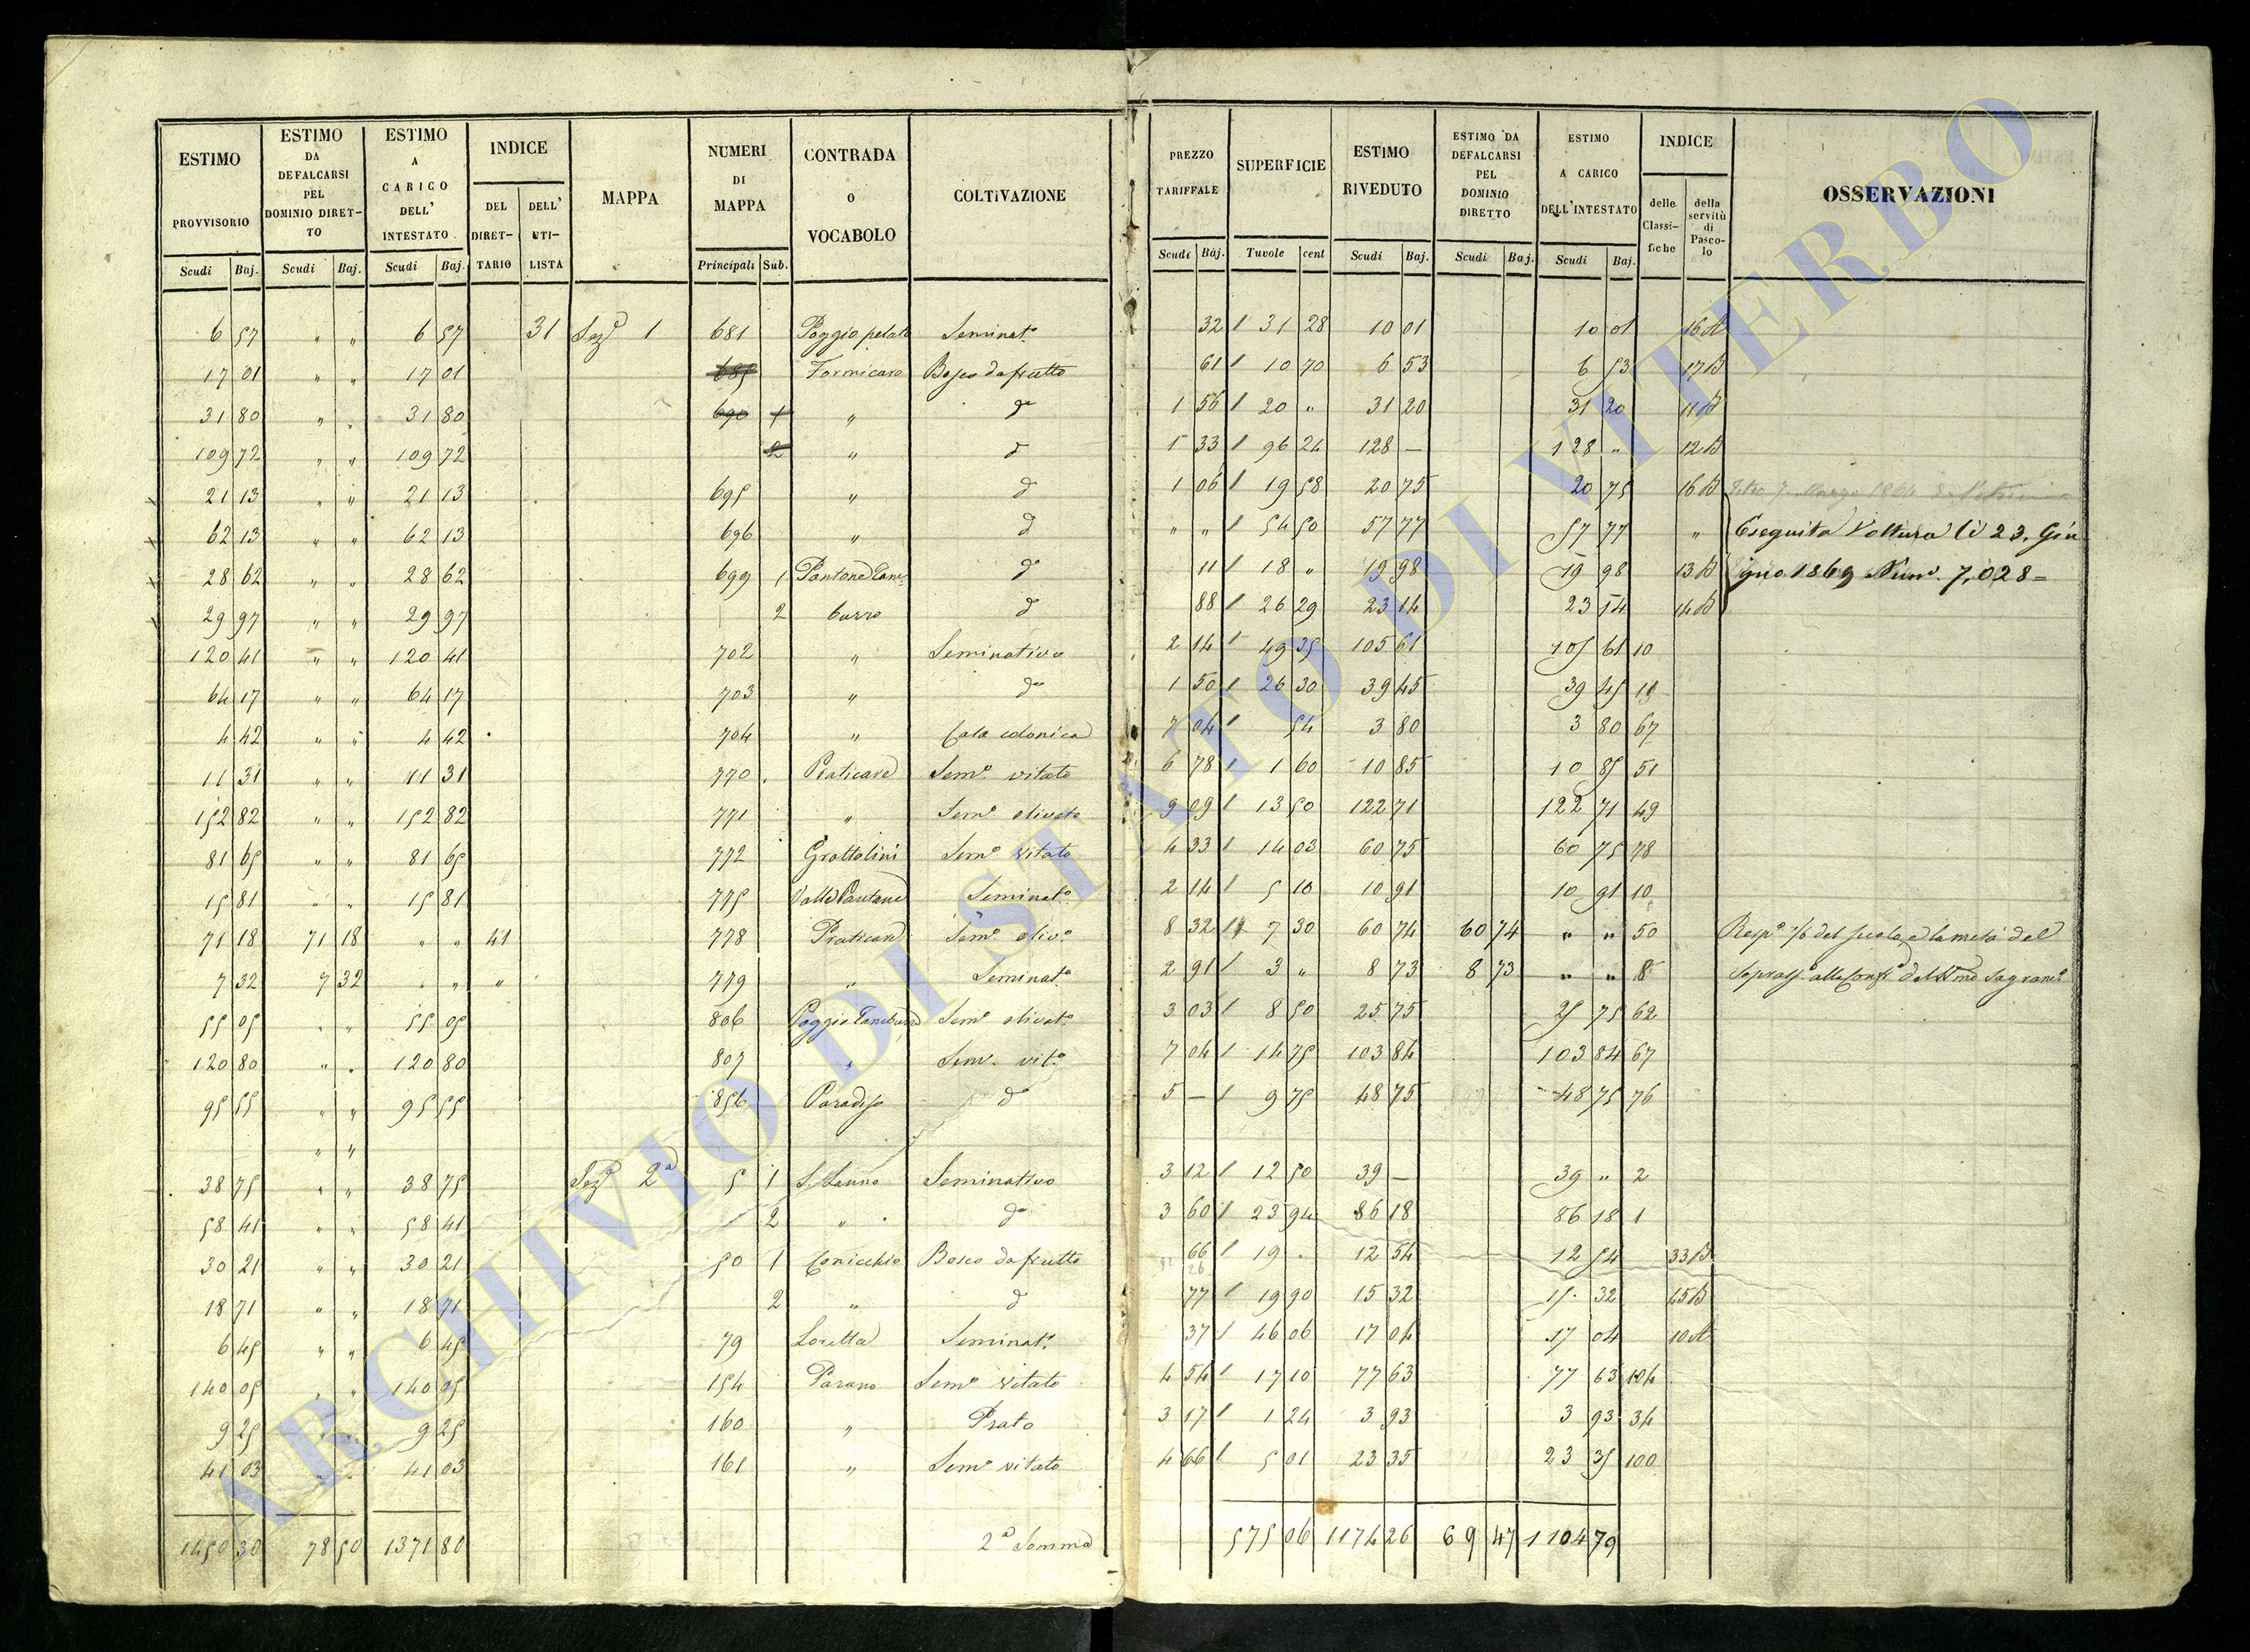 ESTIMO PROVVISORIO
ESTIMO DA DEFALCARSI PEL DOMINIO DIRET- TO
ESTIMO A CARICO DELL' INTESTATO
INDICE
DEL DIRET- TARIO
DELL' UTI- LISTA
MAPPA
NUMERI DI MAPPA
CONTRADA O VOCABOLO
COLTIVAZIONE
PREZZO TARIFFALE
SUPERFICIE
ESTIMO RIVEDUTO
ESTIMO DA DEFALCARSI PEL DOMINIO DIRETTO
ESTIMO A CARICO DELL'INTESTATO
INDICE
delle Classi- fiche
della servitù di Pasco- lo
OSSERVAZIONI
Scudi Baj. Scudi Baj. Scudi Baj. Principali Sub. Scudi Baj. Tavole cent Scudi Baj. Scudi Baj. Scudi Baj.
6 57 " " 6 57 31 Sezᵉ 1 681 Poggio pelato Seminatº 32 31 28 10 01 10 01 16 A
17 01 " " 17 01 685 Formicaro Bosco da frutto 61 10 70 6 53 6 53 17 B
31 80 " " 31 80 690 1 " dº 1 56 20 " 31 20 31 20 11 B
109 72 " " 109 72 2 " d 1 33 96 24 128 — 128 " 12 B
21 13 " " 21 13 695 " d 1 06 19 58 20 75 20 75 16 B
62 13 " " 62 13 696 " d " " 54 50 57 77 57 77 " Eseguita Voltura li 23. Giu
28 62 " " 28 62 699 1 Pantane Tam- dº 11 18 " 19 98 19 98 13 B gno 1869 Numº. 7,028=
29 97 " " 29 97 2 burro d 88 26 29 23 14 23 14 14 B
120 41 " " 120 41 702 " Seminativo 2 14 49 35 105 61 105 61 10
64 17 " " 64 17 703 " dº 1 50 26 30 39 45 39 45 19
4 42 " " 4 42 704 " Casa colonica 7 04 54 3 80 3 80 67
11 31 " " 11 31 770 Praticare Semº vitato 6 78 1 60 10 85 10 85 51
152 82 " " 152 82 771 " Semº olivato 9 09 13 50 122 71 122 71 49
81 65 " " 81 65 772 Grottolini Semº vitato 4 33 14 03 60 75 60 75 78
15 81 " " 15 81 775 Valle Pantane Seminatº 2 14 5 10 10 91 10 91 10
71 18 71 18 " " 41 778 Praticare Semº olivº 8 32 7 30 60 74 60 74 " " 50 del suolo e la metà del
7 32 7 32 " " " 779 " Seminatº 2 91 3 " 8 73 8 73 " " 8
55 05 " " 55 05 806 Poggio Tamburro Semº olivatº 3 03 8 50 25 75 25 75 62
120 80 " " 120 80 807 " Sem. vitº 7 04 14 75 103 84 103 84 67
95 55 " " 95 55 856 Paradiso dº 5 — 9 75 48 75 48 75 76
" "
38 75 " " 38 75 Sezᵉ 2ª 5 1 S. Sanno Seminativo 3 12 12 50 39 — 39 " 2
58 41 " " 58 41 2 " dº 3 60 23 94 86 18 86 18 1
30 21 " " 30 21 50 1 Conicchio Bosco da frutto 66 19 . 12 54 12 54 33 B
18 71 " " 18 71 2 " d 77 19 90 15 32 15 32 15 B
6 45 " " 6 45 79 Loretta Seminatº 37 46 06 17 04 17 04 10 A
140 05 " " 140 05 154 Parano Semº vitato 4 54 17 10 77 63 77 63 104
9 25 " " 9 25 160 " Prato 3 17 1 24 3 93 3 93 34
41 03 " " 41 03 161 " Semº vitato 4 66 5 01 23 35 23 35 100
1450 30 78 50 1371 80 2ª Somma 575 06 1174 26 69 47 1104 79
ARCHIVIO DI STATO DI VITERBO